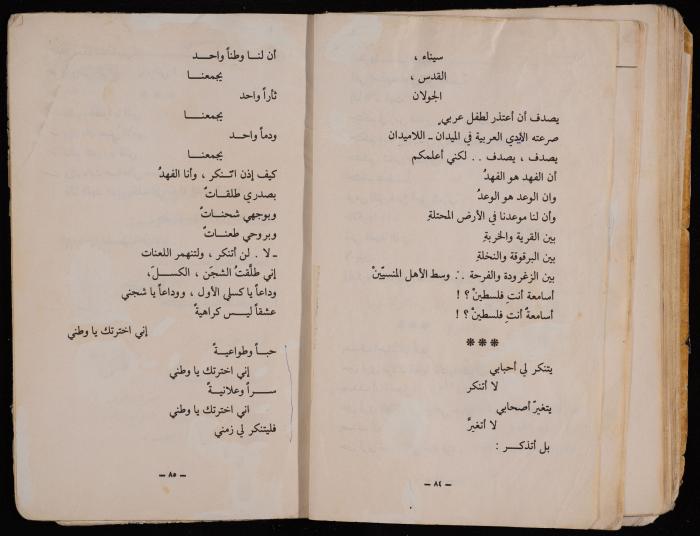 سيناء ،
القدس ،
الجولان
يصدف أن أعتذر لطفل عربيٍ
صرعته الأيدي العربية في الميدان ــ اللاميدان
يصدف ، يصدف . . لكني أعلمكم
أن الفهد هو الفهدُ
وان الوعد هو الوعدُ
وأن لنا موعدنا في الأرض المحتلةِ
بين القرية والخربةِ
بين البرقوقة والنخلةِ
بين الزغرودة والفرحة . . وسط الأهل المنسيّينْ
أسامعة أنتِ فلسطينْ ؟ !
أسامعةٌ أنتِ فلسطينْ ؟ !
***
يتنكر لي أحبابي
لا أتنكر
يتغيرّ أصحابي
لا أتغيرَّ
بل أتذكــر :
ــ ٨٤ ــ
أن لنــا وطناً واحــد
يجمعنــا
ثأراً واحد
يجمعنــا
ودماً واحــد
يجمعنــا
كيف إذن اتــنكر ، وأنا الفهدُ
بصدري طلقــاتٌ
وبوجهي شحنــاتٌ
وبروحي طعنــاتٌ
ــ لا . لن أتنكر ، ولتنهمر اللعنات
إني طلَّقتُ الشجَن ، الكســلَ،
وداعاً يا كسلي الأول ، ووداعاً يا شجني
عشقاً ليــس كراهيةً
إني اخترتك يا وطني
حبــاً وطواعيــةً
إني اخترتك يا وطني
ســراً وعلانيــةً
اني اخترتك يا وطني
فليتنكر لي زمني
ــ ٨٥ ــ